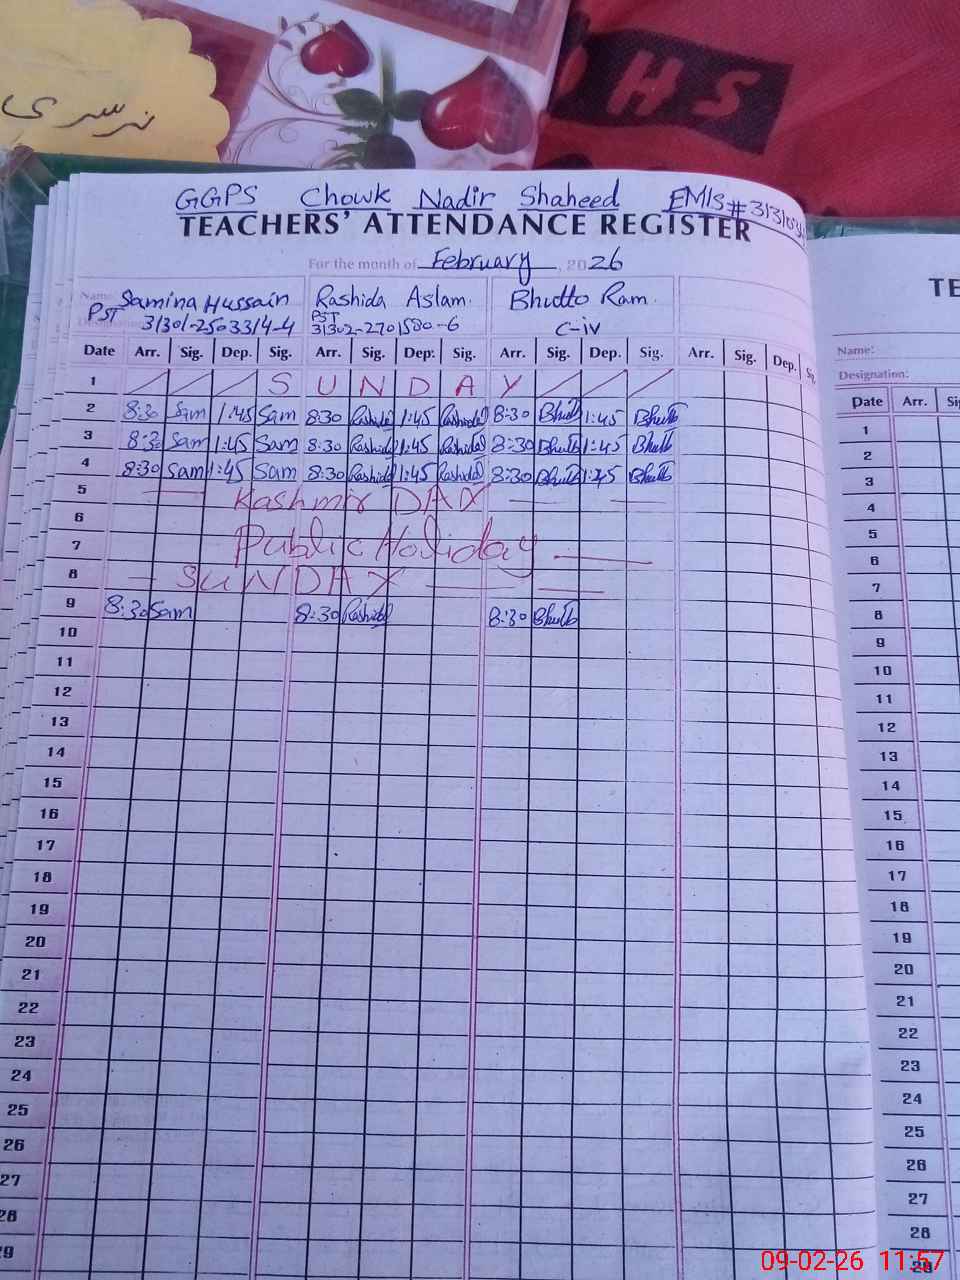 نرسری
HS
GGPS Chowk Nadir Shaheed EMIS# 313103
TEACHERS' ATTENDANCE REGISTER
For the month of February, 2026
Name: Samina Hussain Rashida Aslam. Bhutto Ram.
PST PST C-iv
Designation: 31301-2503314-4 31302-2701580-6
Date Arr. Sig. Dep. Sig. Arr. Sig. Dep. Sig. Arr. Sig. Dep. Sig. Arr. Sig. Dep. Sig.
1 SUNDAY
2 8:30 Sam 1:45 Sam 8:30 Rashida 1:45 Rashida 8:30 Bhutto 1:45 Bhutto
3 8:30 Sam 1:45 Sam 8:30 Rashida 1:45 Rashida 8:30 Bhutto 1:45 Bhutto
4 8:30 Sam 1:45 Sam 8:30 Rashida 1:45 Rashida 8:30 Bhutto 1:45 Bhutto
5 Kashmir DAY
6
7 Public Holiday
8 SUNDAY
9 8:30 Sam 8:30 Rashida 8:30 Bhutto
10
11
12
13
14
15
16
17
18
19
20
21
22
23
24
25
26
27
28
29
TE
Name:
Designation:
Date Arr.
1
2
3
4
5
6
7
8
9
10
11
12
13
14
15
16
17
18
19
20
21
22
23
24
25
26
27
28
29
09-02-26 11:57